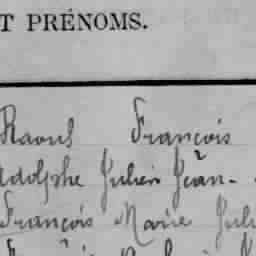 T PRÉNOMS.
Raoul François
Adolphe Julien Jean-
François Marie Juli